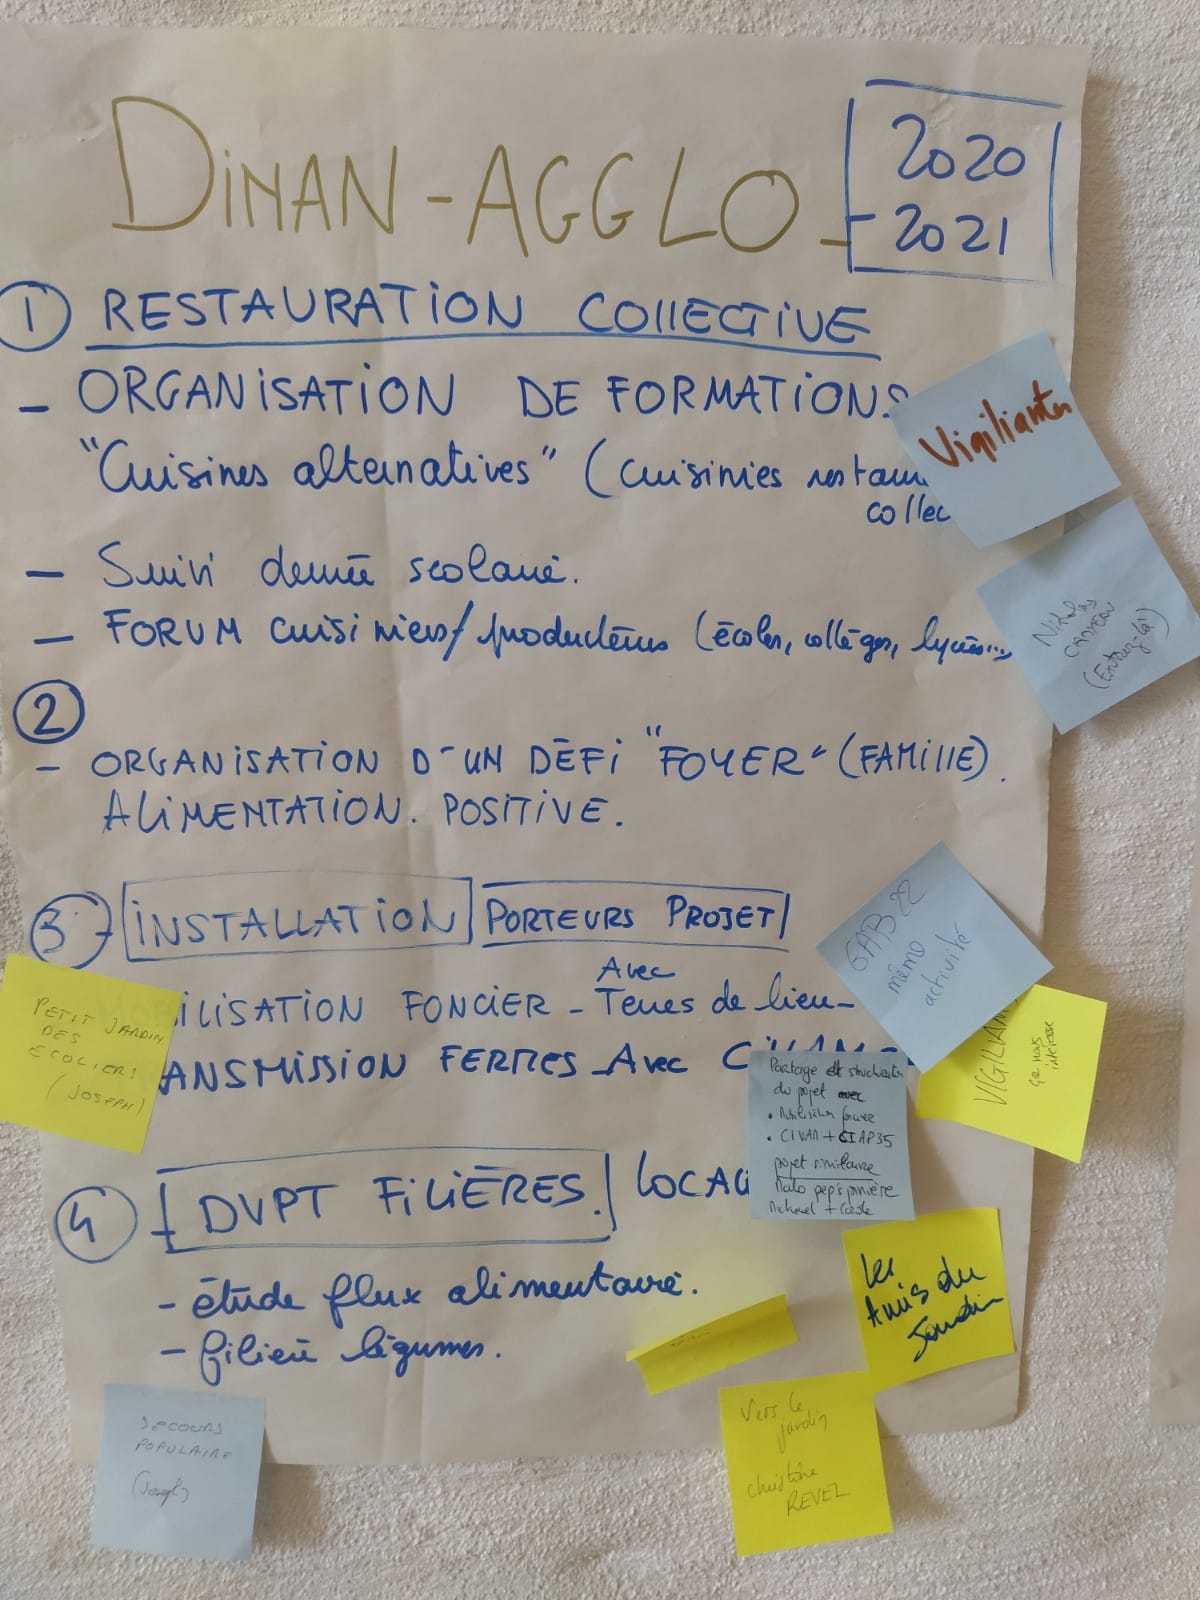 DINAN-AGGLO
2020
- 2021
① RESTAURATION COLLECTIVE
- ORGANISATION DE FORMATIONS
"Cuisines alternatives" (cuisiniers restau
collec
- Suivi denrée scolaire.
- FORUM cuisiniers/producteurs (écoles, collèges, lycées...
②
- ORGANISATION D'UN DÉFI "FOYER" (FAMILLE).
ALIMENTATION. POSITIVE.
③ - INSTALLATION PORTEURS PROJET
Avec
ILISATION FONCIER - Terres de lien -
ANSMISSION FERMES - Avec
④ - DVPT FILIÈRES. LOCA
- étude flux alimentaire.
- filière légumes.
Vigiliantes
Nicolas
(Entrez-là)
GAB 22
mémo
activité
VIGILIAN
ça nous
intéresse
PETIT JARDIN
DES
ECOLIERS
(JOSEPH)
Partage et structuration
du projet avec
• Mobilisation foncière
• CIVAM + CIAP35
projet similaire
Malo pépinière
Les
Amis du
Jardin
Vers le
jardin
christine
REVEL
SECOURS
POPULAIRE
(Joseph)